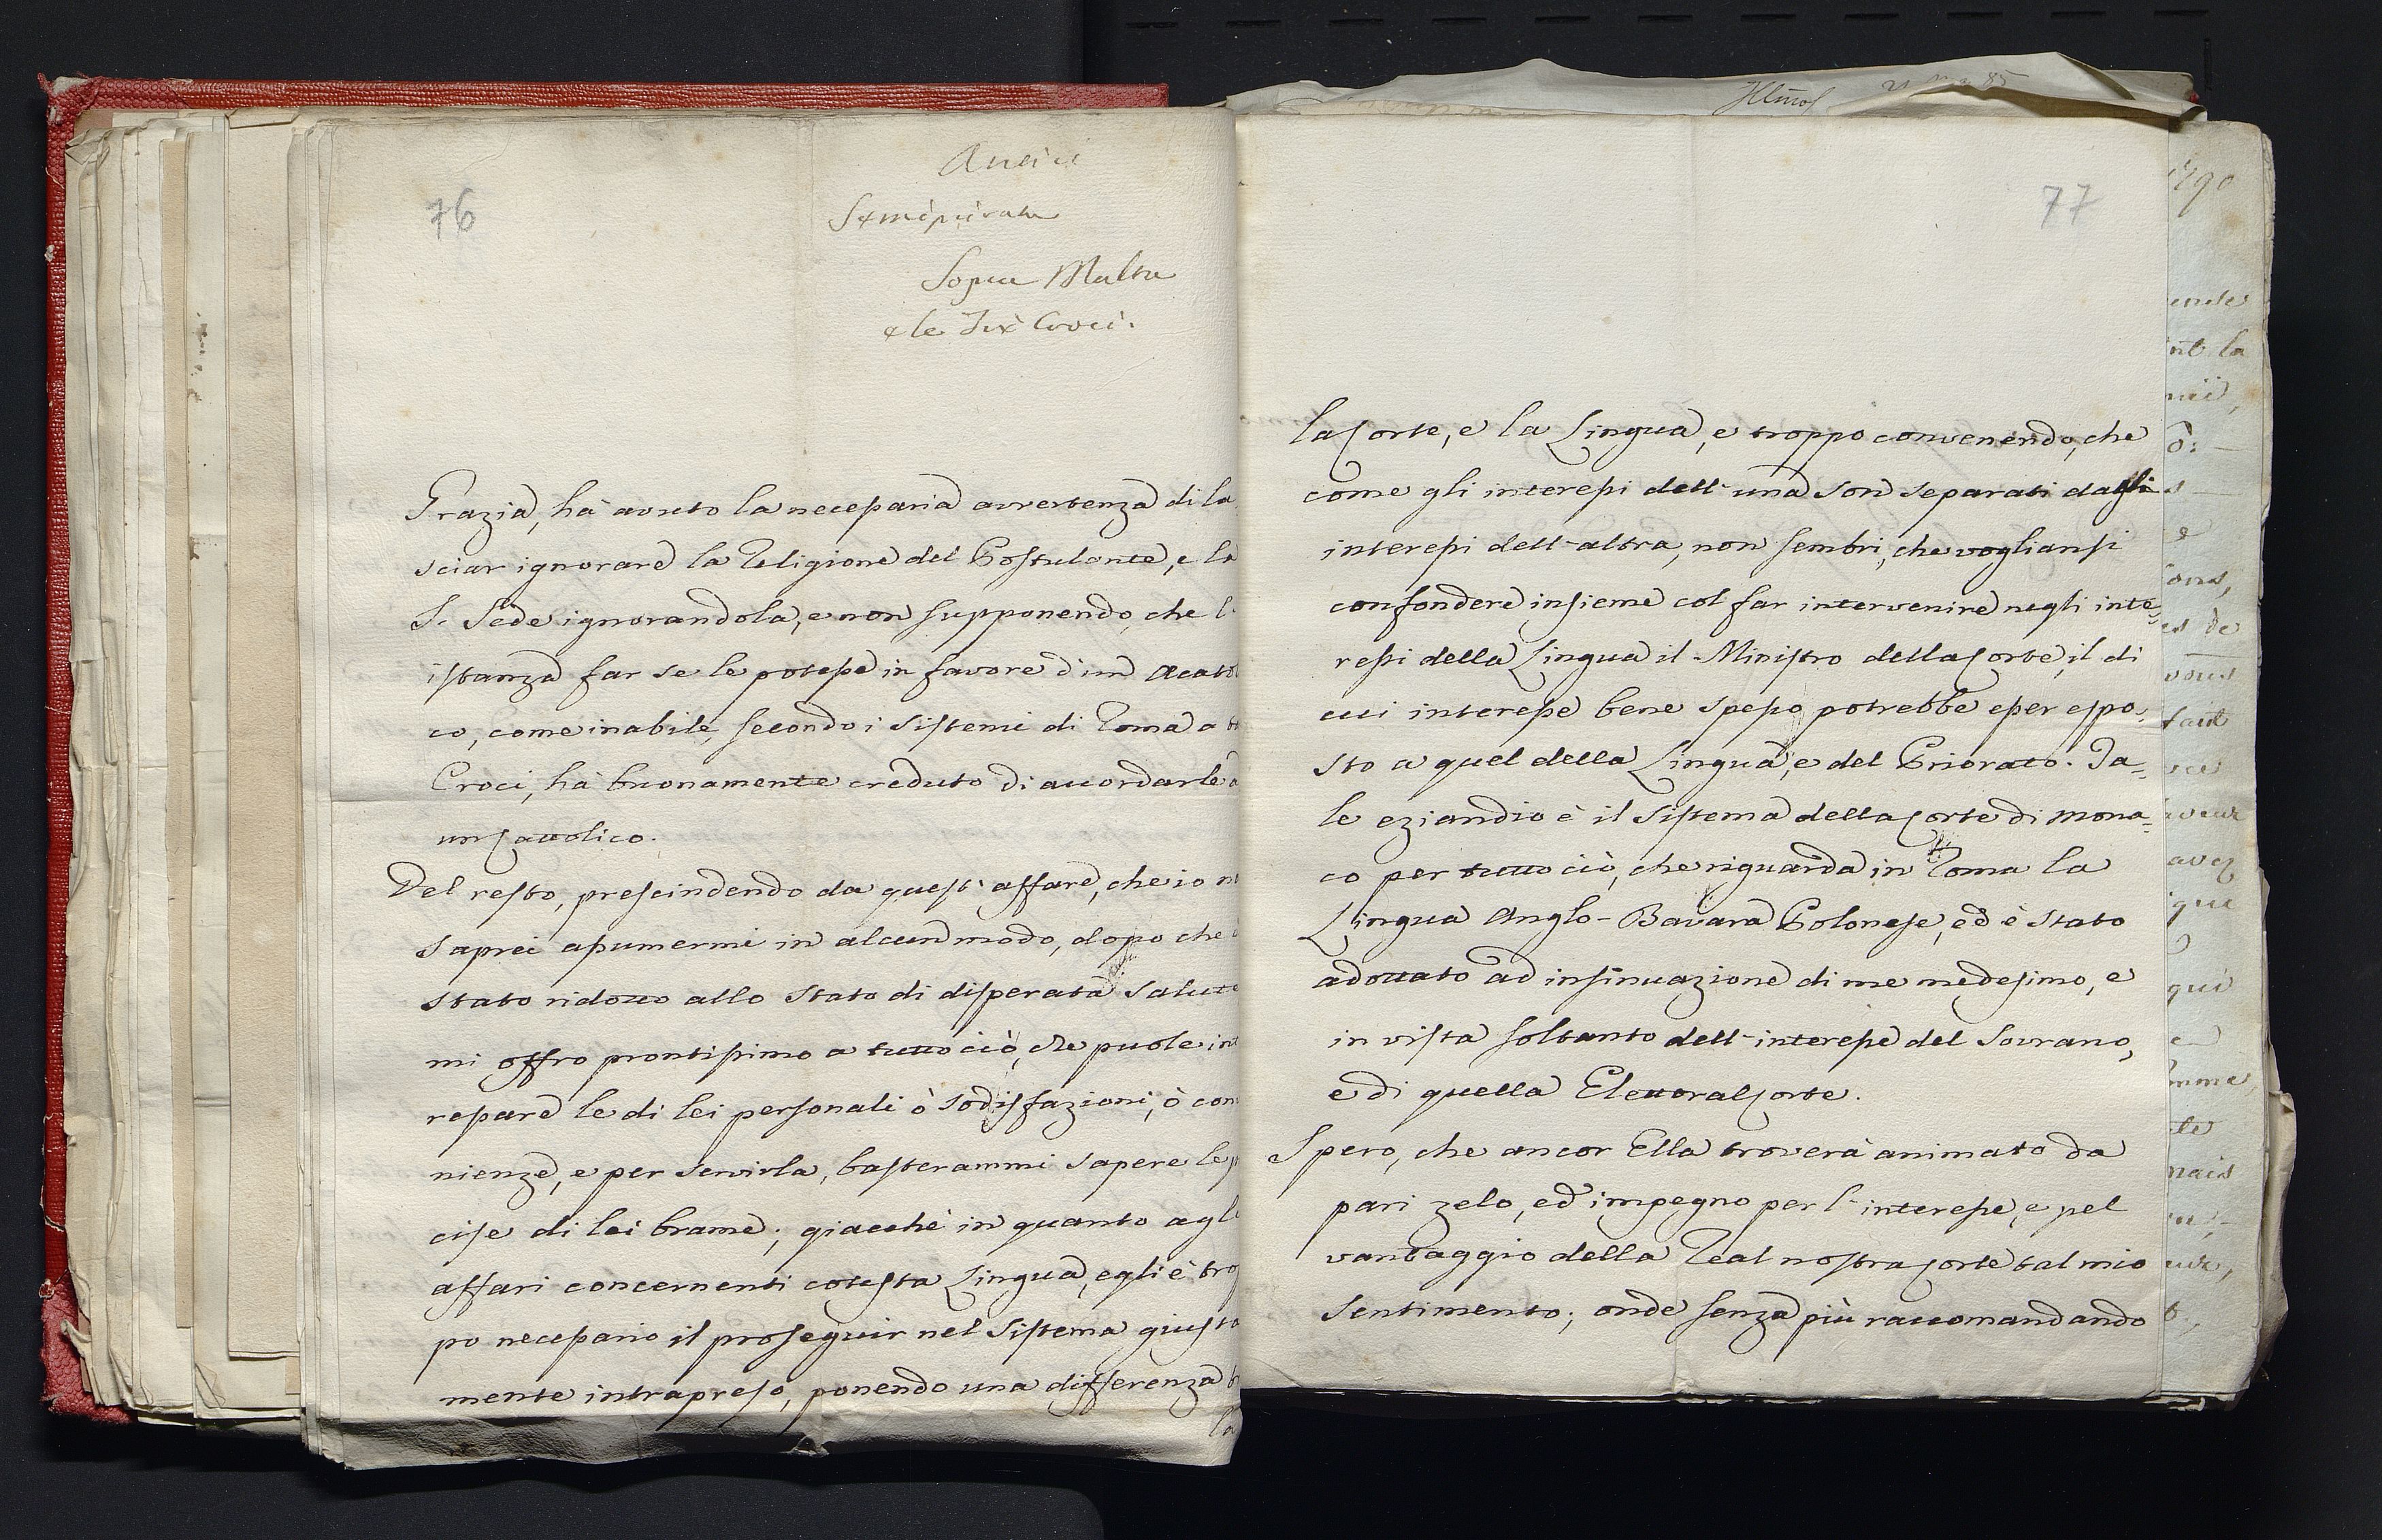 76
Antici
Semiprivata
Sopra Malta
e le Croci.
Grazia, hà avuto la necessaria avvertenza di la
sciar ignorare la Religione del Postulante, e la
S. Sede ignorandola, e non supponendo, che l'
istanza far se le potesse in favore d'un Acato
co, come inabile, secondo i Sistemi di Roma a
Croci, hà buonamente creduto di accordarle a
un Cattolico.
Del resto, prescindendo da quest'affare, che io
saprei assumermi in alcun modo, dopo che
stato ridotto allo Stato di disperata salute
mi offro prontissimo a tutto ciò, che puole int
ressare le di lei personali ò sodisfazioni, ò con
nienze, e per servirla, basterammi sapere le p
cise di lei brame; giacchè in quanto agl
affari concernenti cotesta Lingua, egli è trop
po necessario il proseguir nel Sistema giusta
mente intrapreso, ponendo una differenza
la
77
la Corte, e la Lingua, e troppo convenendo, che
come gli interessi dell'una son separati dagli
interessi dell'altra, non sembri, che vogliansi
confondere insieme col far intervenire negli inte
ressi della Lingua il Ministro della Corte, il di
cui interesse bene spesso potrebbe esser oppo,
sto a quel della Lingua, e del Priorato. Ta=
le eziandio è il Sistema della Corte di Mona=
co per tutto ciò, che riguarda in Roma la
Lingua Anglo-Bavara Polonese, ed è stato
adottato ad insinuazione di me medesimo, e
in vista soltanto dell'interesse del Sovrano,
e di quella Elettoral Corte.
Spero, che ancor Ella troverà animato da
pari zelo, ed impegno per l'interesse, e pel
vantaggio della Real nostra Corte tal mio
sentimento; onde senza più raccomandando
1790
nt la
es de
vous
faut
avez
que
qui
mais